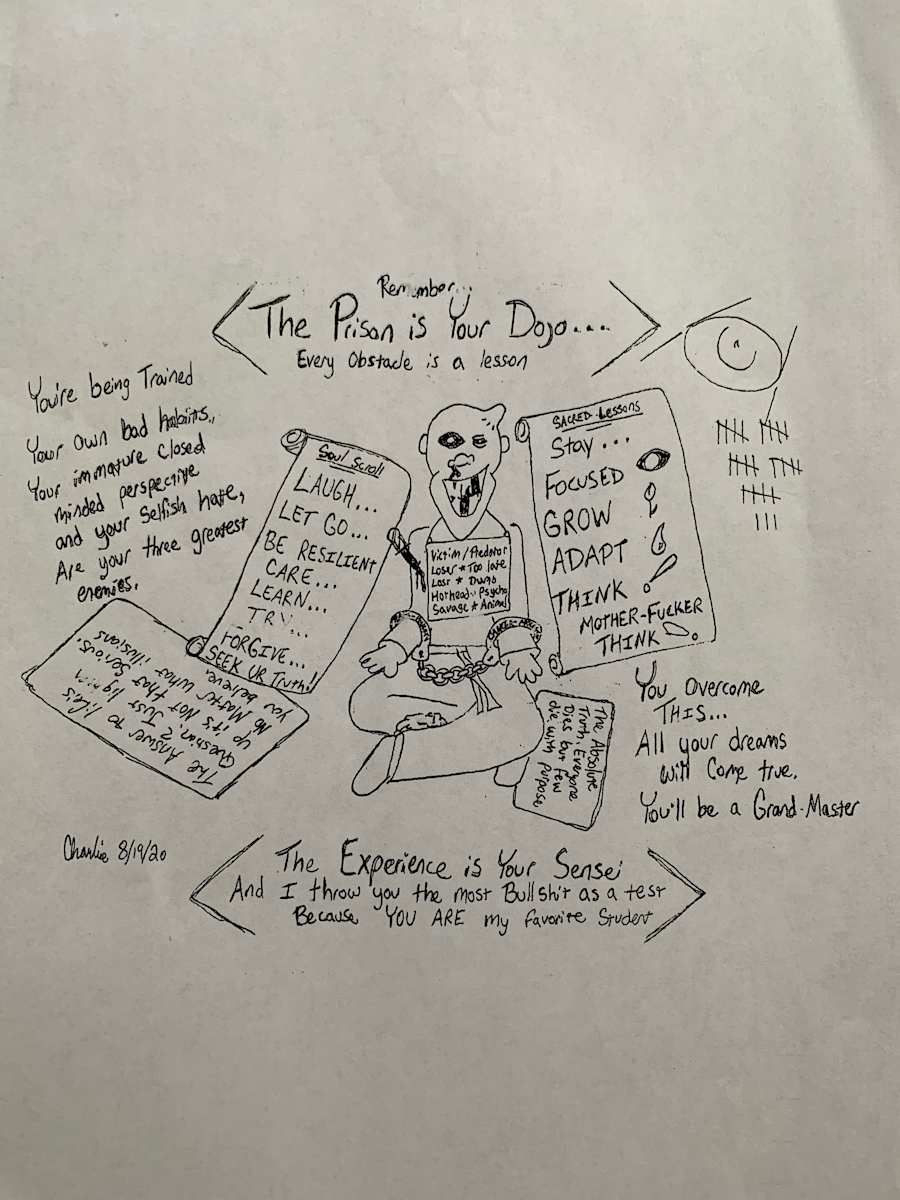 Remember...
The Prison is Your Dojo....
Every Obstacle is a lesson
You're being Trained
Your own bad habits,
Your immature closed
minded perspective
and your selfish hate,
Are your three greatest
enemies.
Soul Scroll
LAUGH...
LET GO...
BE RESILIENT
CARE...
LEARN...
TRY...
FORGIVE...
SEEK UR Truth!
Victim/Predator
Loser * Too late
Lost *
Hothead Psycho
Savage * Animal
SACRED Lessons
Stay...
FOCUSED
GROW
ADAPT
THINK!
MOTHER-FUCKER
THINK
The Answer to life's
Question? Just lighten
up it's NOT that Serious.
No Matter What illusions
you believe.
The Absolute
Truth. Everyone
Dies but few
die with Purpose
You overcome
THIS...
All your dreams
will Come true.
You'll be a Grand-Master
Charlie 8/19/20
The Experience is Your Sensei
And I throw you the most Bullshit as a test
Because YOU ARE my favorite Student